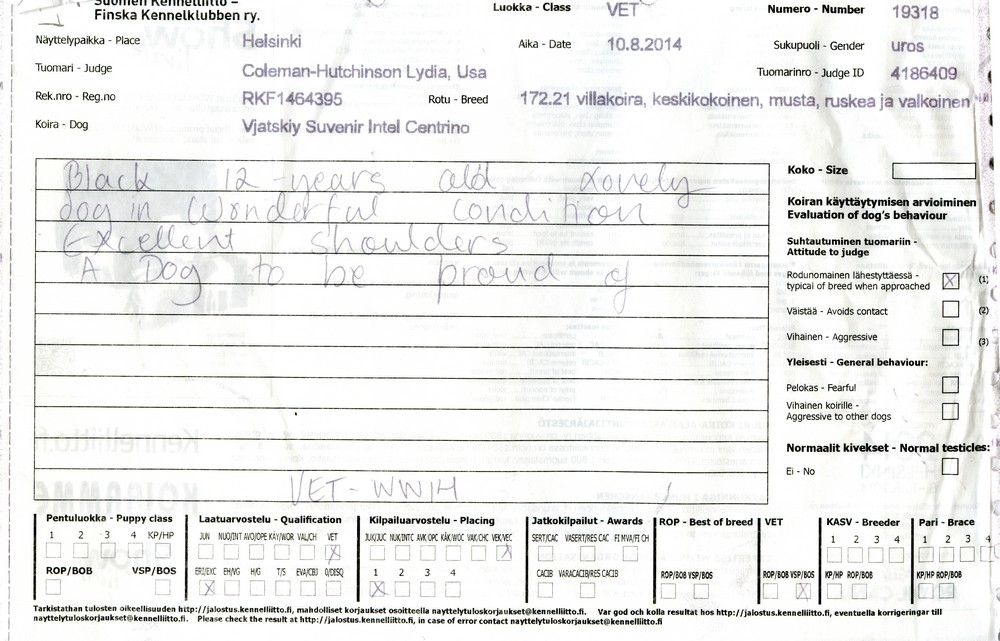 Suomen Kennelliitto –
Finska Kennelklubben ry.
Luokka - Class VET
Numero - Number 19318
Näyttelypaikka - Place Helsinki
Aika - Date 10.8.2014
Sukupuoli - Gender uros
Tuomari - Judge Coleman-Hutchinson Lydia, Usa
Tuomarinro - Judge ID 4186409
Rek.nro - Reg.no RKF1464395
Rotu - Breed 172.21 villakoira, keskikokoinen, musta, ruskea ja valkoinen
Koira - Dog Vjatskiy Suvenir Intel Centrino
Black 12-years old Lovely
dog in Wonderful condition
Excellent shoulders
A Dog to be proud of
VET-WW14
Koko - Size
Koiran käyttäytymisen arvioiminen
Evaluation of dog's behaviour
Suhtautuminen tuomariin -
Attitude to judge
Rodunomainen lähestyttäessä -
typical of breed when approached X (1)
Väistää - Avoids contact (2)
Vihainen - Aggressive (3)
Yleisesti - General behaviour:
Pelokas - Fearful
Vihainen koirille -
Aggressive to other dogs
Normaalit kivekset - Normal testicles:
Ei - No
Pentuluokka - Puppy class
1 2 3 4 KP/HP
ROP/BOB VSP/BOS
Laatuarvostelu - Qualification
JUN NUO/INT AVO/OPE KÄY/WOR VAL/CH VET
X
ERI/EXC EH/VG H/G T/S EVA/CBJ 0/DISQ
X
Kilpailuarvostelu - Placing
JUK/JUC NUK/INTC AVK/OPC KÄK/WOC VAK/CHC VEK/VEC
X
1 2 3 4
X
Jatkokilpailut - Awards
SERT/CAC VASERT/RES CAC FI MVA/FI CH
CACIB VARACACIB/RES CACIB
ROP - Best of breed
ROP/BOB VSP/BOS
VET
ROP/BOB VSP/BOS
X
KASV - Breeder
1 2 3 4
KP/HP ROP/BOB
Pari - Brace
1 2 3 4
KP/HP ROP/BOB
Tarkistathan tulosten oikeellisuuden http://jalostus.kennelliitto.fi, mahdolliset korjaukset osoitteella nayttelytuloskorjaukset@kennelliitto.fi. Var god och kolla resultat hos http://jalostus.kennelliitto.fi, eventuella korrigeringar till
nayttelytuloskorjaukset@kennelliitto.fi. Please check the result at http://jalostus.kennelliitto.fi, in case of error contact nayttelytuloskorjaukset@kennelliitto.fi